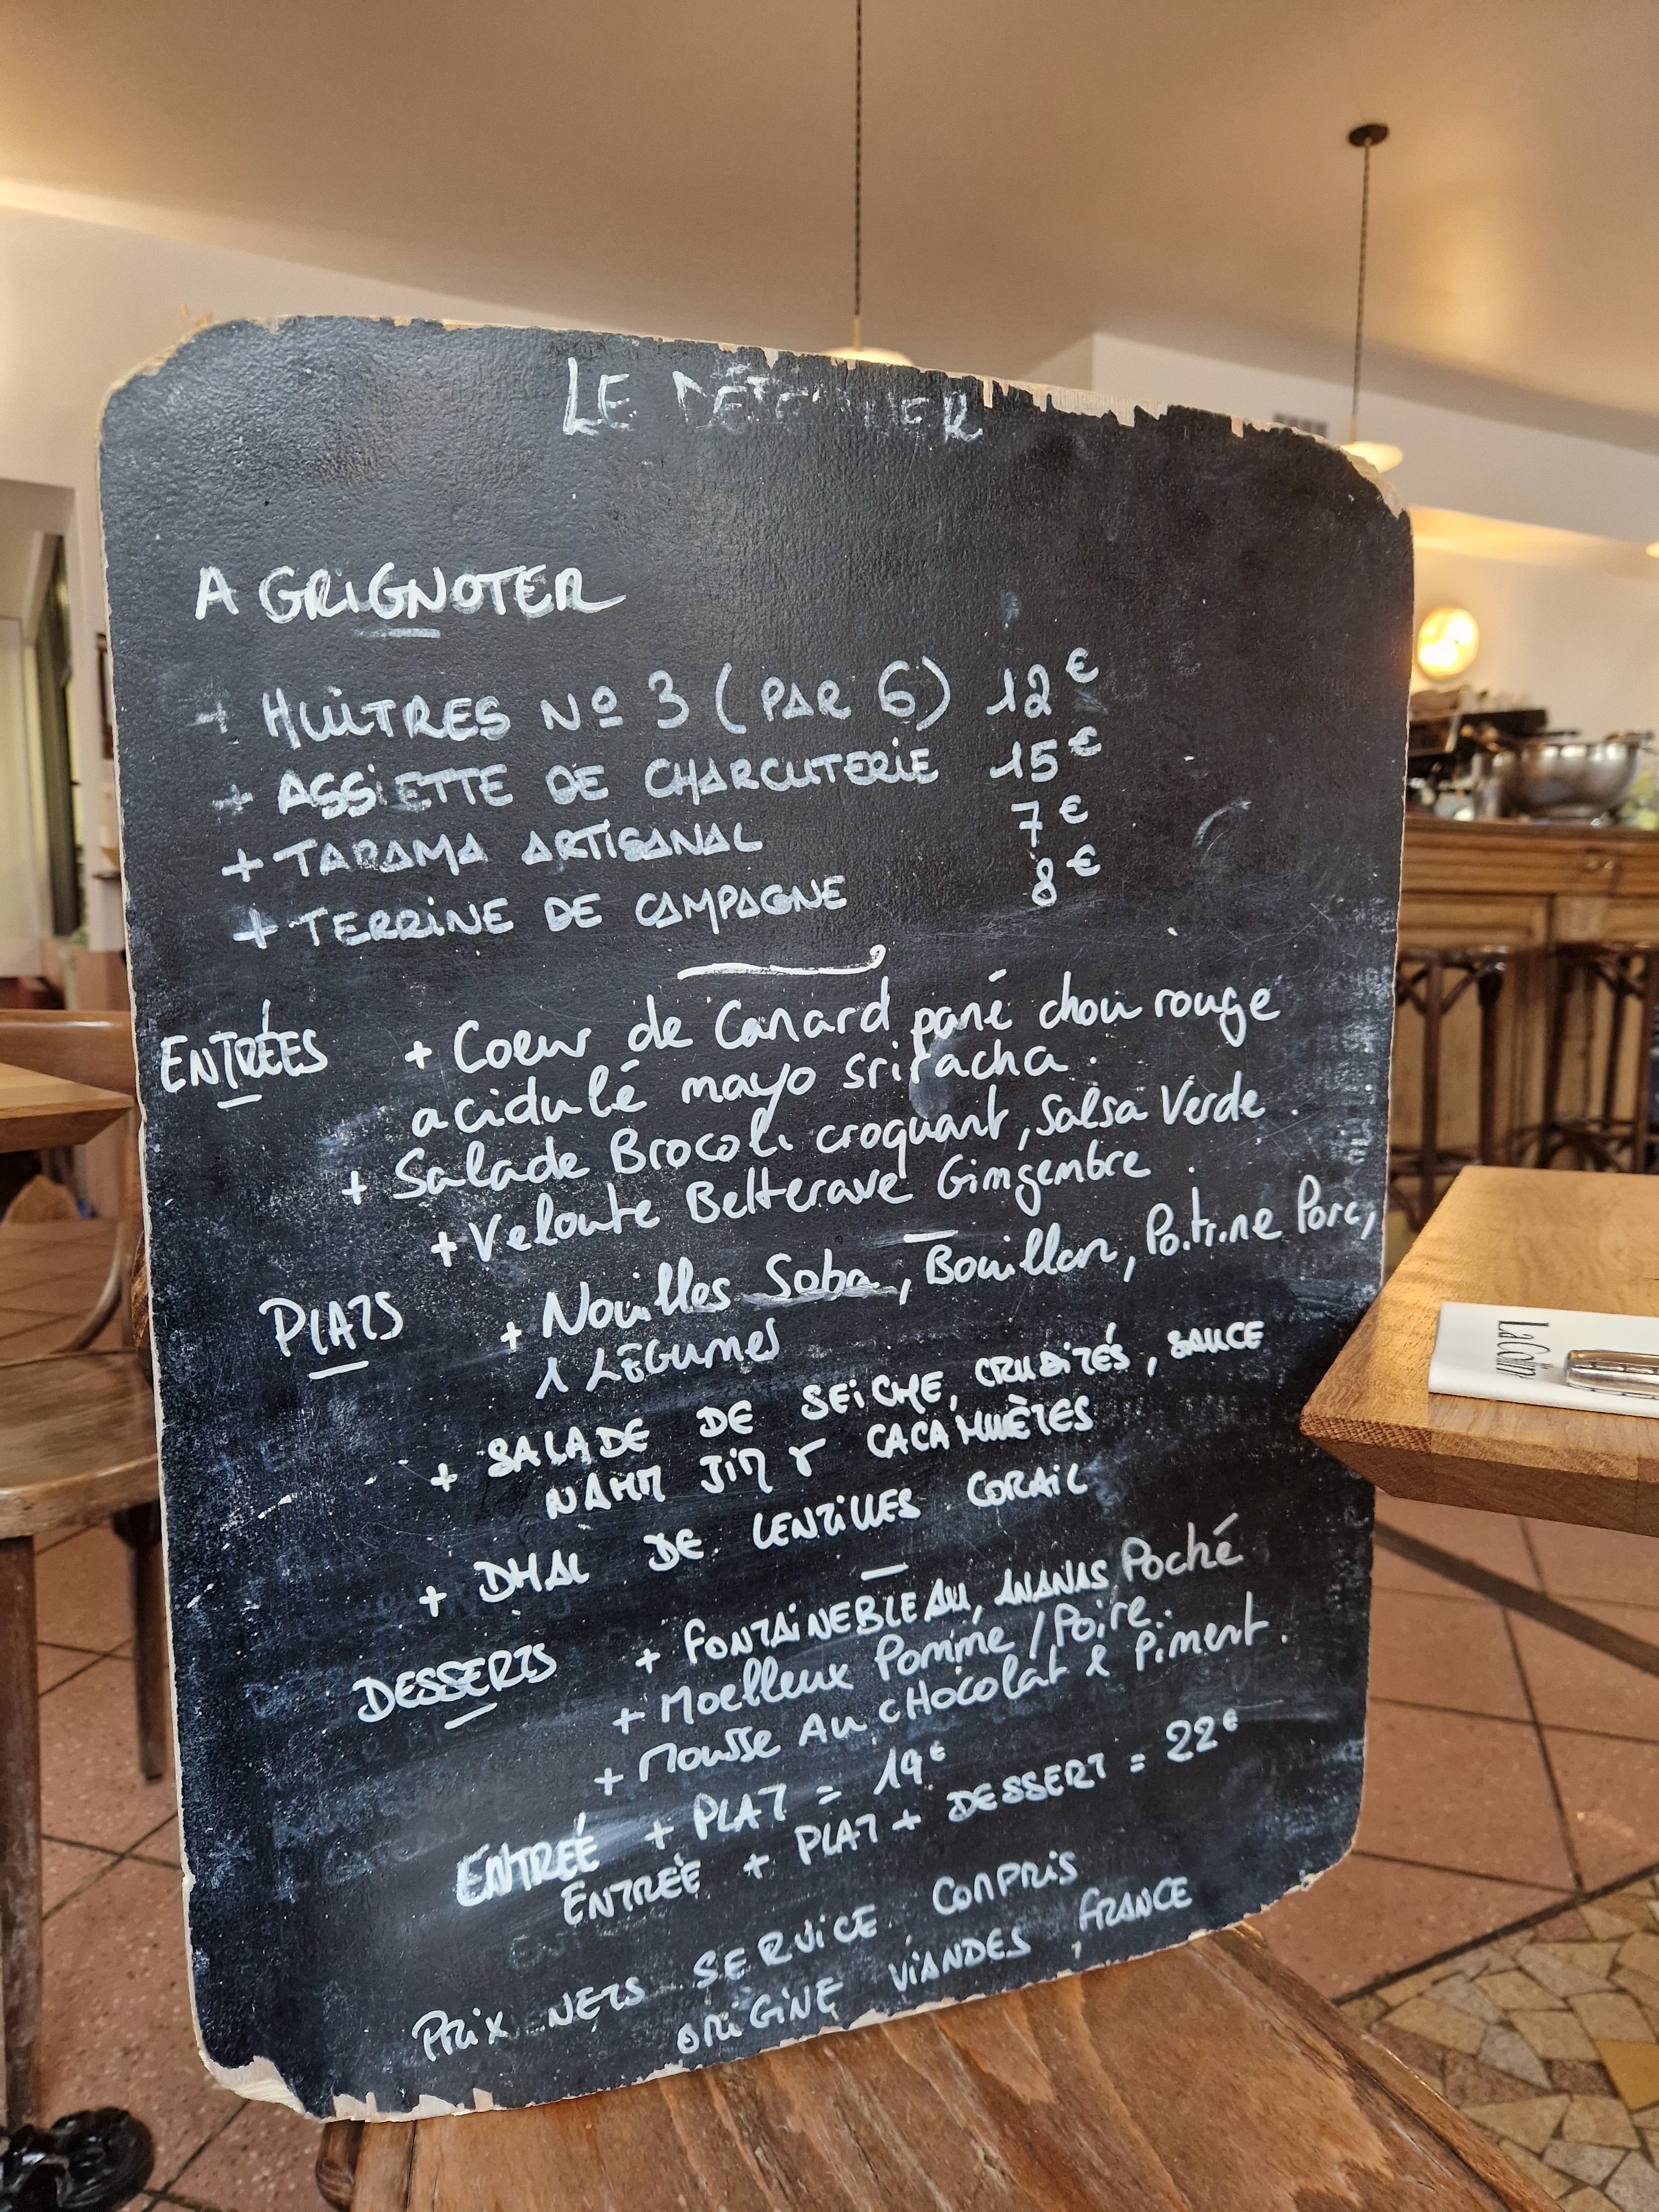 LE DÉJEUNER
A GRIGNOTER
+ HUÎTRES Nº 3 (PAR 6) 12€
+ ASSIETTE DE CHARCUTERIE 15€
+ TARAMA ARTISANAL 7€
+ TERRINE DE CAMPAGNE 8€
ENTRÉES + Coeur de Canard pané chou rouge
acidulé mayo sriracha.
+ Salade Brocoli croquant, Salsa Verde.
+ Veloute Betterave Gimgembre.
PLATS + Nouilles Soba, Bouillon, Poitrine Porc,
& LÉGUMES
+ SALADE DE SEICHE, CRUDITÉS, SAUCE
NAHM JIM & CACAHUÈTES
+ DHAL DE LENTILLES CORAIL
DESSERTS + FONTAINEBLEAU, ANANAS Poché
+ Moelleux Pomme / Poire.
+ Mousse Au cHocolat & Piment.
ENTRÉE + PLAT = 19€
ENTRÉE + PLAT + DESSERT = 22€
PRIX NETS SERVICE COMPRIS
ORIGINE VIANDES, FRANCE
La Coin